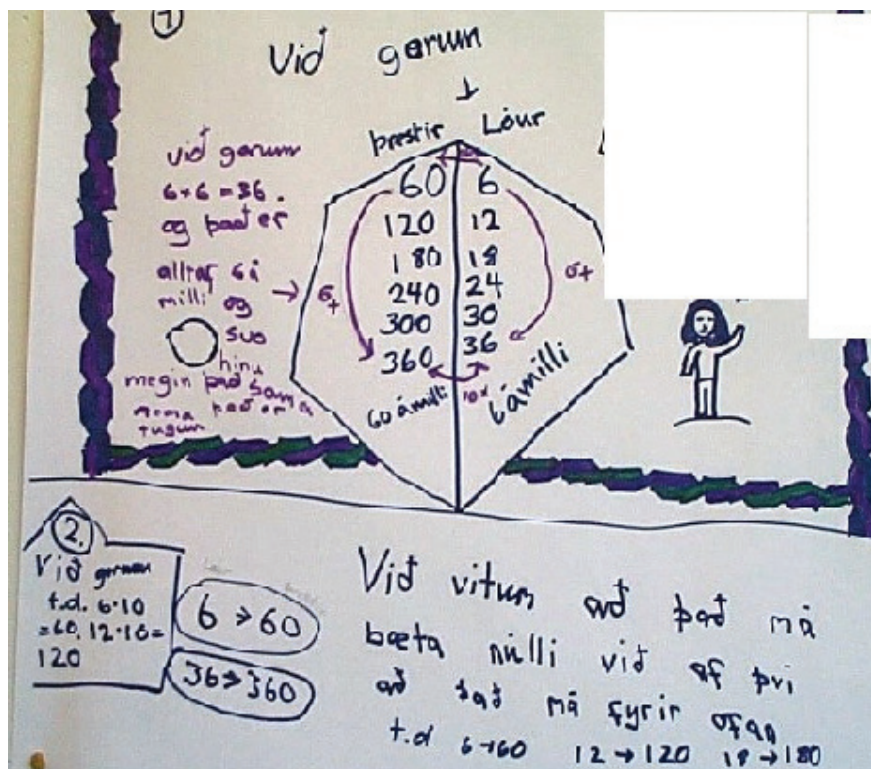 1
Við gerum
↓
þrestir Lóur
við gerum
6+6=36.
og það er
alltaf 6 á
milli og
svo
hinu
megin það sama
nema það er
tugum
60 6
120 12
180 18
240 24
300 30
360 36
6+
6+
60 á milli
10x
6 á milli
2.
Við gerum
t.d. 6·10
=60, 12·10=
120
6 → 60
36 → 360
Við vitum að það má
bæta núlli við af því
að það má fyrir ofan
t.d 6→60 12→120 18→180